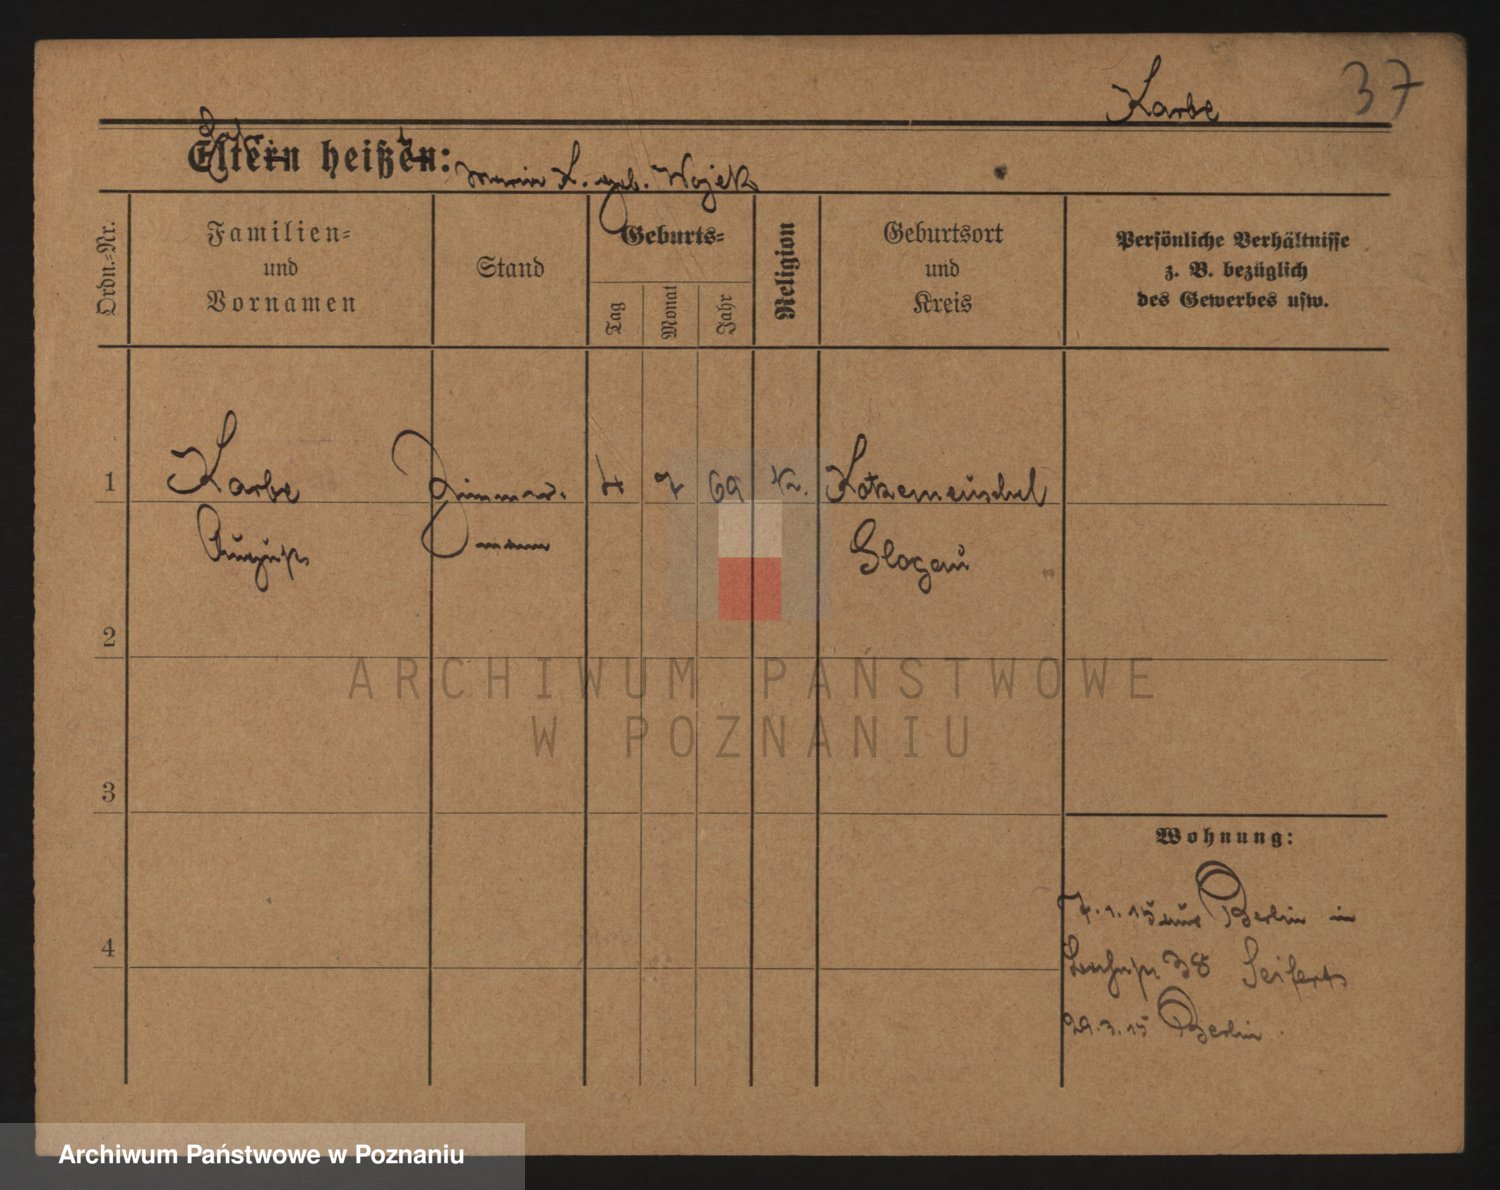 Karbe 37
Eltern heißen: Maria K. geb. Wojek
Ordn.-Nr.
Familien-
und
Vornamen
Stand
Geburts-
Tag
Monat
Jahr
Religion
Geburtsort
und
Kreis
Persönliche Verhältnisse
z. B. bezüglich
des Gewerbes usw.
1 Karbe Zimmer- 4 7 69 Kotzemeuschel
August mann Glogau
2
3
4
Wohnung:
7.1.15 aus Berlin in
38 Seifert
29.3.15 Berlin
ARCHIWUM PAŃSTWOWE
W POZNANIU
Archiwum Państwowe w Poznaniu